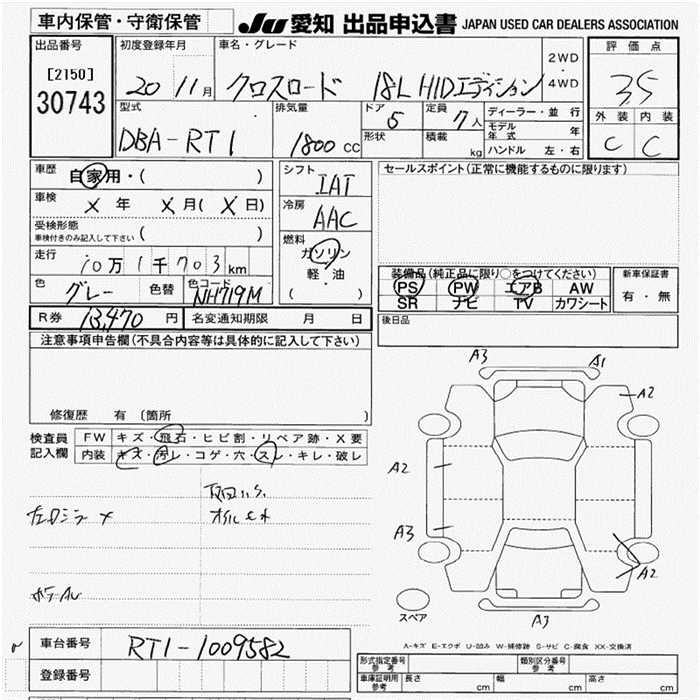 車内保管・守衛保管
JU 愛知 出品申込書 JAPAN USED CAR DEALERS ASSOCIATION
出品番号
[2150]
30743
初度登録年月
20 11月
車名・グレード
クロスロード 18L HIDエディション
2WD
・
4WD
評価点
3.5
外装 内装
C C
型式
DBA-RT1
排気量
1800 CC
ドア
5
形状
定員
7人
積載
kg
ディーラー・並行
モデル年式 年
ハンドル 左・右
車歴
自家用・( )
車検
× 年 × 月( × 日)
受検形態
車検付きのみ記入して下さい ( )
走行
10万1千703km
色
グレー
色替
色コード
NH719M
シフト
IAT
冷房
AAC
燃料
ガソリン
軽・油
( )
セールスポイント(正常に機能するものに限ります)
装備品(純正品に限り○をつけてください)
PS PW エアB AW
SR ナビ TV カワシート
新車保証書
有・無
R券 13,470 円
名変通知期限 月 日
後日品
注意事項申告欄(不具合内容等は具体的に記入して下さい)
修復歴 有 〔箇所 〕
検査員記入欄
FW キズ・飛石・ヒビ割・リペア跡・X要
内装 キズ・汚レ・コゲ・穴・スレ・キレ・破レ
A3 A1
A2
A2
A3
A2
A3
スペア
A-キズ E-エクボ U-凹み W-補修跡 S-サビ C-腐食 XX-交換済
車台番号 RT1-1009582
登録番号
形式指定番号
参考
類別区分番号
参考
車庫証明用
参考
長さ cm 幅 cm 高さ cm